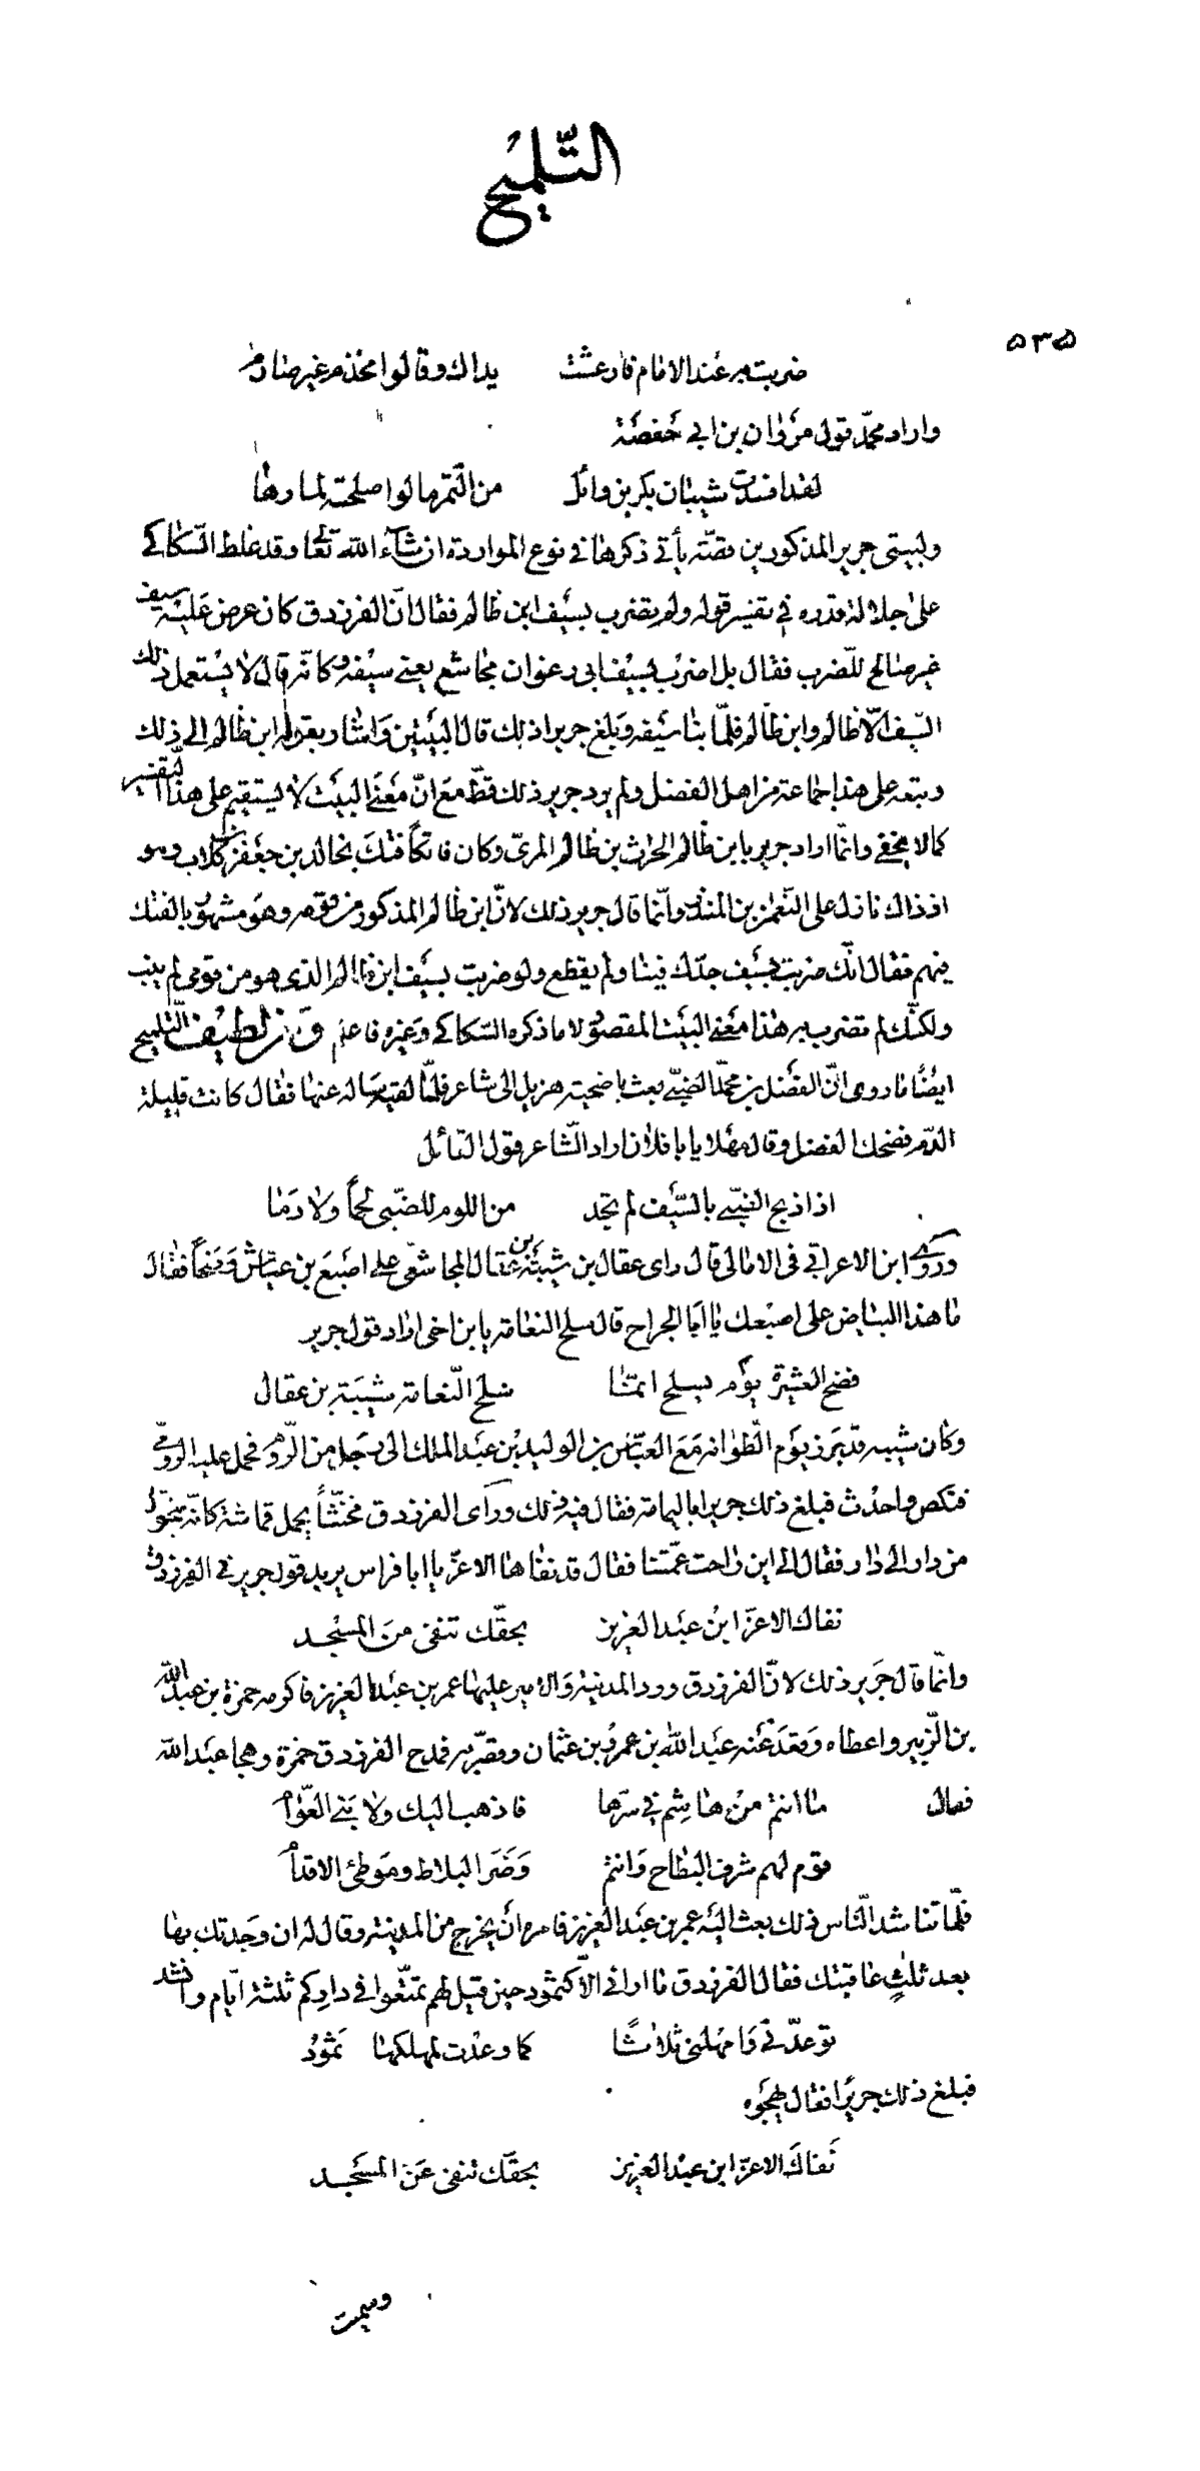 التّلميح
٥٣٥
ضربت به عند الامام فارعشت يداك وقالوا محذم غير صارم
واراد محمّد قول مروان بن ابي حفصة
لقد افسدت شيبان بكر بن وائل من التّمر ما لو اصلحته لمارها
ولبيتى جرير المذكورين قصّة يأتى ذكرها في نوع المواردة ان شآء الله تعالى وقد غلط السّكاكي
على جلالة قدره في تفسير قوله ولم تضرب بسيف ابن ظالم فقال انّ الفرزدق كان عرض عليه سيف
غير صالح للضّرب فقال بل اضرب بسيف ابى رغوان مجاشع يعنى سيفه وكانّه قال لا يستعمل ذلك
السّيف الّا ظالم وابن ظالم فلمّا نبا سيفه وبلغ جريرا ذلك قال البيتين واشار بقوله ابن ظالم الى ذلك
وتبعه على هذا جماعة من اهل الفضل ولم يرد جرير ذلك قطّ مع انّ معنى البيت لا يستقيم على هذا التفسير
كما لا يخفى وانّما اراد جرير بابن ظالم الحارث بن ظالم المرىّ وكان فاتكا فتك بخالد بن جعفر بن كلاب وهو
اذ ذاك نازل على النّعمن بن المنذر وانّما قال جرير ذلك لانّ ابن ظالم المذكور من قومه وهو مشهور بالفتك
فيهم فقال انّك ضربت بسيف جدّك فينا ولم يقطع ولو ضربت بسيف ابن ظالم الذى هو من قومى لم ينب
ولكنّك لم تضرب به هذا معنى البيت المقصود لا ما ذكره السّكاكي وغيره فاعلم ومن لطيف التّلميح
ايضًا ما روى انّ الفضل بن محمّد الضبّى بعث باضحية هزيل الى شاعر فلمّا لقيه ساله عنها فقال كانت قليلة
الدّم فضحك الفضل وقال مهلا يا ابا فلان اراد الشّاعر قول القائل
اذا ذبح الضبّى بالسّيف لم تجد من اللوم للضّبى لحمًا ولا دما
وروى ابن الاعرابي فى الامالى قال راى عقال بن شبّة بن عقال المجاشعى على اصبع بن عيّاش وضحًا فقال
ما هذا البياض على اصبعك يا ابا الجراح قال سلح النعامة يا بن اخى اراد قول جرير
فضح العشيرة يوم يسلح ائمنا سلح النّعامة شيبة بن عقال
وكان شيبه قد برز يوم الطّوانه مع العبّاس بن الوليد بن عبد الملك الى رجل من الرّوم فحمل عليه الرّومى
فنكص واحدث فبلغ ذلك جريرا باليمامة فقال فيه ذلك ورأى الفرزدق مخنّثاً يحمل قماشه كانّه يتحوّل
من دار الى دار فقال الى اين راحت عمّتنا فقال قد نفاها الاعزّ يا ابا فراس يريد قول جرير في الفرزدق
نفاك الاعزّ ابن عبد العزيز بحقّك تنفى من المسجد
وانّما قال جرير ذلك لانّ الفرزدق ورد المدينة والامير عليها عمر بن عبد العزيز فاكرمه حمزة بن عبد الله
بن الزّبير واعطاه وقعد عنه عبد الله بن عمرو بن عثمان وقصّر به فمدح الفرزدق حمزة وهجا عبد الله
فقال ما انتم من هاشم في سرّها فاذهب اليك ولا بني العوّام
قوم لهم شرف البطاح وانتم وضر البلاط وموطئ الاقدام
فلمّا تناشد النّاس ذلك بعث اليه عمر بن عبد العزيز فامره أن يخرج من المدينة وقال له ان وجدتك بها
بعد ثلثٍ عاقبتك فقال الفرزدق ما اراني الّا كثمود حين قيل لهم تمتّعوا في داركم ثلثة ايّام وانشد
توعّدني وامهلنى ثلاثًا كما وعدت لمهلكها ثمود
فبلغ ذلك جريرًا فقال يهجوه
نفاك الاعزّ ابن عبد العزيز بحقّك تنفى عن المسجد
وسميت